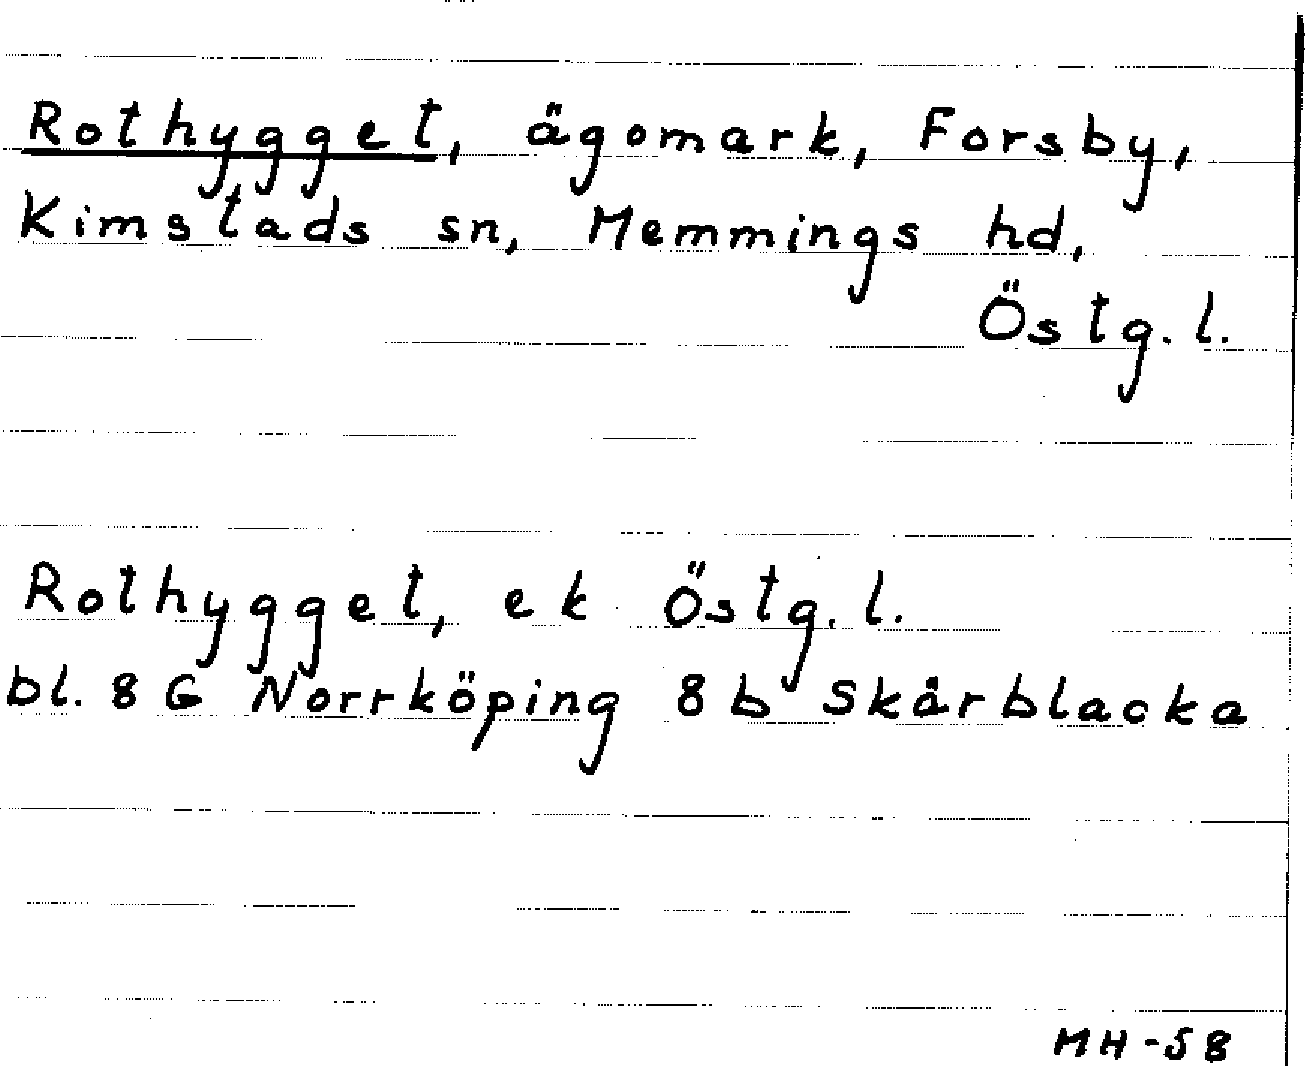 Rothygget, ägomark, Forsby,
Kimstads sn, Memmings hd,
Östg. l.
Rothygget, ek Östg. l.
bl. 8 G Norrköping 8 b Skärblacka
MH-58